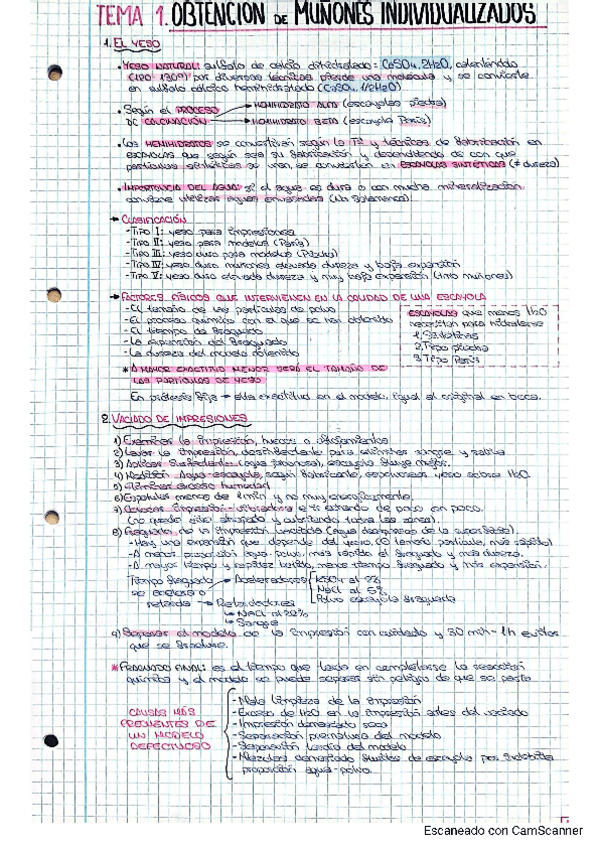 TEMA 1. OBTENCION DE MUÑONES INDIVIDUALIZADOS
1. EL YESO
• YESO NATURAL: sulfato de calcio dihidratado: CaSO4. 2H2O, calentándolo
(120 130º) por diversas técnicas pierde una molécula y se convierte
en sulfato cálcico hemihidratado (CaSO4. 1/2H2O)
• Según el PROCESO → HEMIHIDRATO ALFA (escayola piedra)
DE CALCINACIÓN → HEMIHIDRATO BETA (escayola París)
• Los HEMIHIDRATOS se convertirán según la Tª y técnicas de fabricación en
ESCAYOLAS que según sea su fabricación y dependiendo de con que
partículas sintéticas se unan, se convierten en ESCAYOLAS SINTÉTICAS (≠ dureza)
• IMPORTANCIA DEL AGUA: si el agua es dura o con mucha mineralización
conviene utilizar aguas envasadas
→ CLASIFICACIÓN
- Tipo I: yeso para impresiones
- Tipo II: yeso para modelos (París)
- Tipo III: yeso duro para modelos (Piedra)
- Tipo IV: yeso duro muñones elevada dureza y baja expansión
- Tipo V: yeso duro elevada dureza y muy baja expansión (muñones)
→ FACTORES FÍSICOS QUE INTERVIENEN EN LA CALIDAD DE UNA ESCAYOLA
- El tamaño de las partículas de polvo
- El proceso químico con el que se han obtenido
- El tiempo de fraguado
- La expansión del fraguado
- La dureza del modelo obtenido
ESCAYOLAS que menos H2O
necesitan para hidratarse
1. Sintéticas
2. Tipo piedra
3. Tipo París
* A MAYOR EXACTITUD MENOR SERÁ EL TAMAÑO DE
LAS PARTÍCULAS DE YESO
En prótesis fija → alta exactitud en el modelo, igual al original en boca.
2. VACIADO DE IMPRESIONES
1) Examinar la impresión, huecos o
2) Lavar la impresión, desinfectante para eliminar sangre y saliva
3) Aplicar sustancia (agua jabonosa), escayola fluye mejor.
4) Medición agua-escayola, según fabricante, espolvorear yeso sobre H2O.
5) Eliminar exceso humedad
6) Espatular menos de 1min y no muy enérgicamente.
7) Colocar impresión - vibradora e ir echando de poco en poco.
(no quede aire atrapado y cubriendo todas las zonas).
8) Fraguado de la impresión vaciada (agua desaparece de la superficie).
- Hay una expansión que depende del yeso. (tamaño partícula, más rápido)
- A menor proporción agua-polvo, más rápido el fraguado y más dureza.
- A mayor tiempo y rapidez batido, menos tiempo fraguado y más expansión.
Tiempo fraguado → Aceleradores K2SO4 al 2%
se acelera o NaCl al 5%
retarda → Retardadores Polvo escayola fraguada
→ NaCl al 20%
→ Sangre
9) Separar el modelo de la impresión con cuidado y 30 min - 1h evitar
que se fracture.
* FRAGUADO FINAL: es el tiempo que tarda en completarse la reacción
química y el modelo se puede separar sin peligro de que se parta
CAUSAS MÁS
FRECUENTES DE
UN MODELO
DEFECTUOSO
- Mala limpieza de la impresión
- Exceso de H2O en la impresión antes del vaciado
- Impresión demasiado seca
- Separación prematura del modelo
- Separación tardía del modelo
- Mezclas demasiado fluidas de escayola por indebida
proporción agua-polvo.
Escaneado con CamScanner